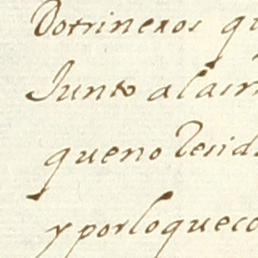 Dotrineros qu
Junto alasin
queno Resid
y porloqueco